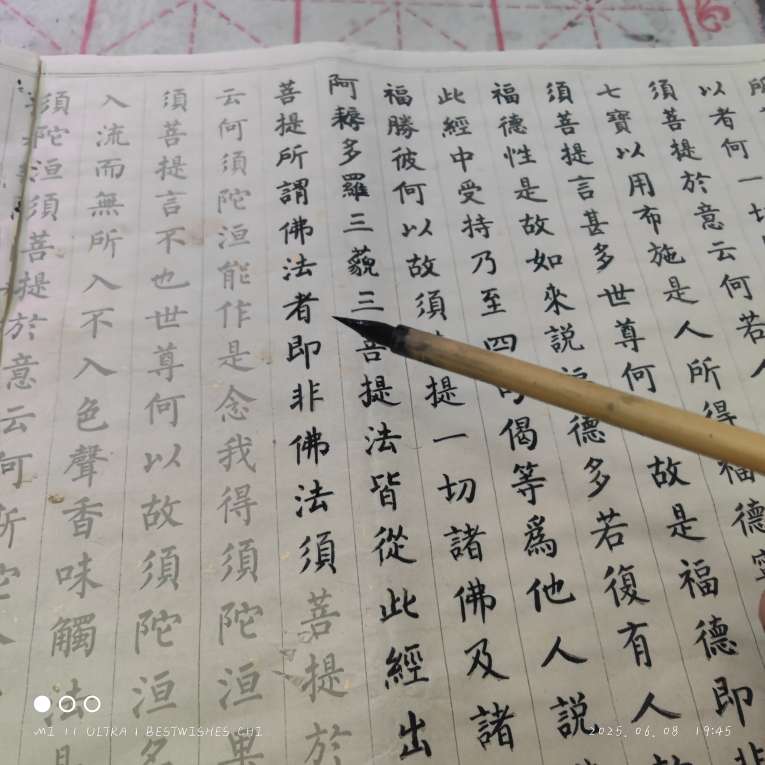 以者何一切
須菩提於意云何若人
七寶以用布施是人所得福德寧
須菩提言甚多世尊何故是福德即非
福德性是故如來說福德多若復有人
此經中受持乃至四句偈等爲他人說
福勝彼何以故須菩提一切諸佛及諸
阿耨多羅三藐三菩提法皆從此經出
菩提所謂佛法者即非佛法須菩提於
云何須陀洹能作是念我得須陀洹果
須菩提言不也世尊何以故須陀洹名
入流而無所入不入色聲香味觸法是
須陀洹須菩提於意云何斯
MI 11 ULTRA | BESTWISHES.CHI
2025.06.08 19:45